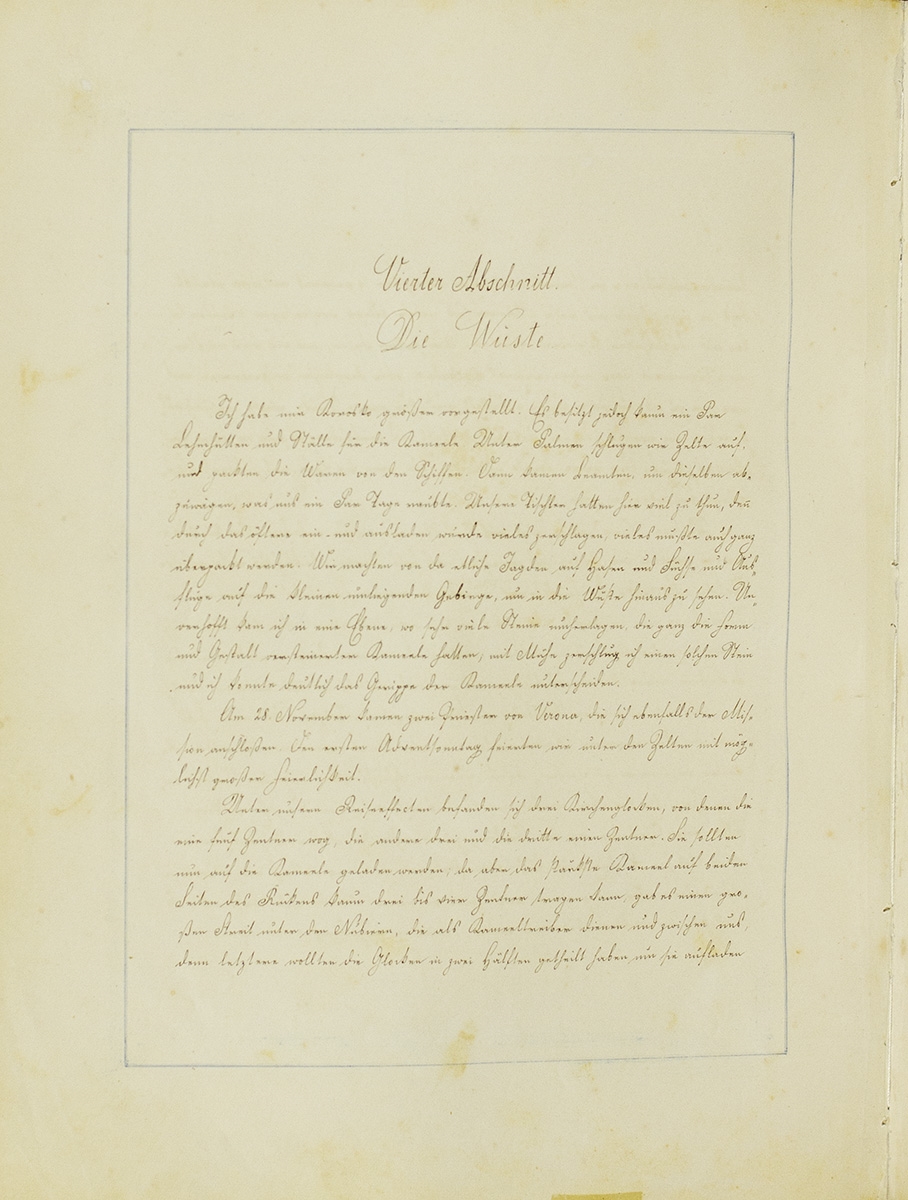 Vierter Abschnitt.
Die Wüste
Ich habe mir Korosko größer vorgestellt. Es besitzt jedoch kaum ein Par
Lehmhütten und Ställe für die Kameele. Unter Palmen schlugen wir Zelte auf,
und packten die Waren von den Schiffen. Dann kamen Beamten, um dieselben ab-
zuwägen, was uns ein Par Tage raubte. Unsere Tischler hatten hier viel zu thun, den̄
durch das öftere ein- und ausladen wurde vieles zerschlagen, vieles mußte auch ganz
überpackt werden. Wir machten von da etliche Jagden auf Hasen und Füchse und Aus-
flüge auf die kleinen umliegenden Gebirge, um in die Wüste hinaus zu sehen. Un-
verhofft kam ich in eine Ebene, wo sehr viele Steine umherlagen, die ganz die Form
und Gestalt versteinerter Kameele hatten; mit Mühe zerschlug ich einen solchen Stein
und ich konnte deutlich das Gerippe der Kameele unterscheiden.
Am 28. November kamen zwei Priester von Verona, die sich ebenfalls der Mis-
sion anschloßen. Den ersten Adventsonntag feierten wir unter den Zelten mit mög-
lichst großer Feierlichkeit.
Unter unsern Reiseeffecten befanden sich drei Kirchenglocken, von denen die
eine fünf Zentner wog, die andere drei und die dritte einen Zentner. Sie sollten
nun auf die Kameele geladen werden; da aber das stärkste Kameel auf beiden
Seiten des Rückens kaum drei bis vier Zentner tragen kann, gab es einen gro-
ßen Streit unter den Nubiern, die als Kameeltreiber dienen und zwischen uns,
denn letztere wollten die Glocken in zwei Hälften getheilt haben um sie aufladen